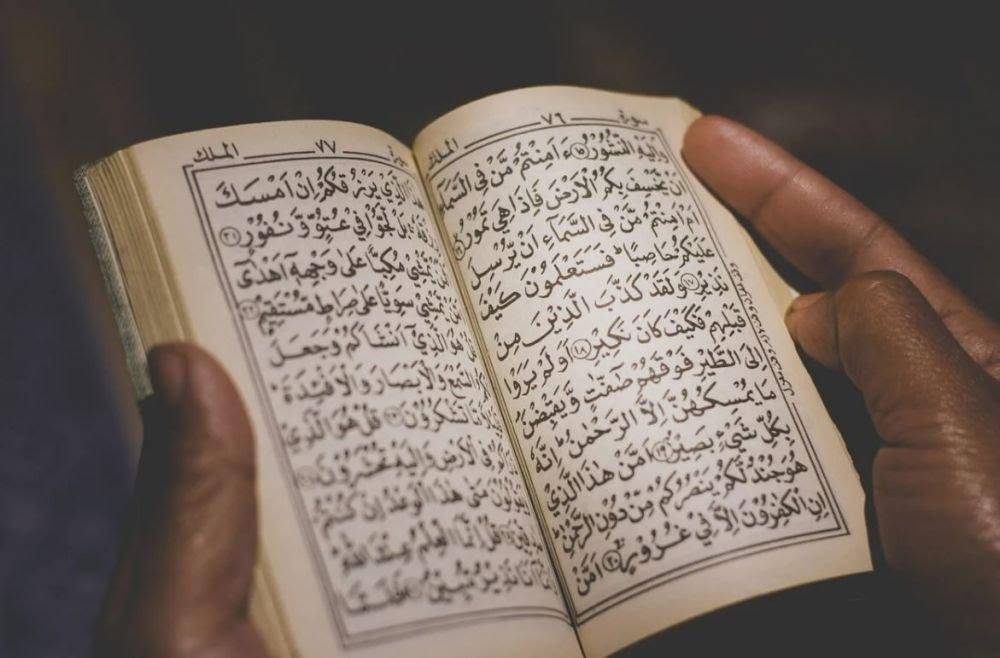 سورة ٧٦ الملك
وَاِلَيْهِ النُّشُوْرُ ١٥ ءَاَمِنْتُمْ مَّنْ فِي السَّمَآءِ
اَنْ يَّخْسِفَ بِكُمُ الْاَرْضَ فَاِذَا هِيَ تَمُوْرُ
اَمْ اَمِنْتُمْ مَّنْ فِي السَّمَآءِ اَنْ يُّرْسِلَ
عَلَيْكُمْ حَاصِبًا ط فَسَتَعْلَمُوْنَ كَيْفَ
نَذِيْرِ ١٧ وَلَقَدْ كَذَّبَ الَّذِيْنَ مِنْ
قَبْلِهِمْ فَكَيْفَ كَانَ نَكِيْرِ ١٨ اَوَلَمْ يَرَوْا
اِلَى الطَّيْرِ فَوْقَهُمْ صٰٓفّٰتٍ وَّيَقْبِضْنَ
مَا يُمْسِكُهُنَّ اِلَّا الرَّحْمٰنُ ط اِنَّهٗ
بِكُلِّ شَيْءٍۢ بَصِيْرٌ ١٩ اَمَّنْ هٰذَا الَّذِيْ
هُوَ جُنْدٌ لَّكُمْ يَنْصُرُكُمْ مِّنْ دُوْنِ الرَّحْمٰنِ ط
اِنِ الْكٰفِرُوْنَ اِلَّا فِيْ غُرُوْرٍ ٢٠ اَمَّنْ
٧٧ الملك
الَّذِيْ يَرْزُقُكُمْ اِنْ اَمْسَكَ
رِزْقَهٗ بَلْ لَّجُّوْا فِيْ عُتُوٍّ وَّنُفُوْرٍ ٢١
يَّمْشِيْ مُكِبًّا عَلٰى وَجْهِهٖٓ اَهْدٰٓى
يَّمْشِيْ سَوِيًّا عَلٰى صِرَاطٍ مُّسْتَقِيْمٍ ٢٢
هُوَ الَّذِيْٓ اَنْشَاَكُمْ وَجَعَلَ
السَّمْعَ وَالْاَبْصَارَ وَالْاَفْـِٕدَةَ
تَشْكُرُوْنَ ٢٣ قُلْ هُوَ الَّذِيْ
فِي الْاَرْضِ وَاِلَيْهِ تُحْشَرُوْنَ
مَتٰى هٰذَا الْوَعْدُ اِنْ كُنْتُمْ
قُلْ اِنَّمَا الْعِلْمُ عِنْدَ اللّٰهِ
اَنَا نَذِيْرٌ مُّبِيْنٌ فَلَمَّا